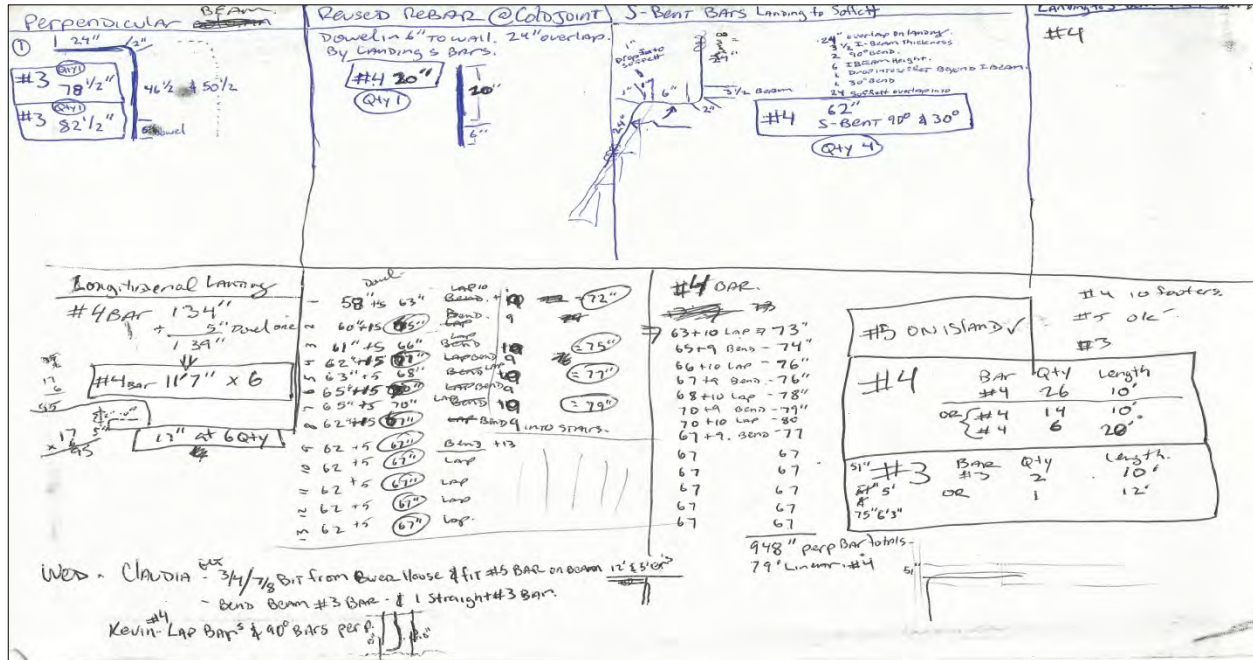 Perpendicular BEAM.
1 24" 2"
#3 Qty 1
78 1/2"
46 1/2 & 50 1/2
#3 Qty 1
82 1/2"
5" Dowel
Reused Rebar @ Cold Joint
Dowel in 6" to wall. 24" overlap.
By Landing 5 Bars.
#4 20"
Qty 1
20"
6"
S-Bent Bars Landing to Soffett
24" overlap on landing.
3 1/2 I-Beam thickness
2 90° Bend.
6 I Beam Height.
1 Drop into soffet Beyond I Beam.
1 30° Bend
24 soffett overlap into
1"
Drop into
soffett
1" 6"
3 1/2 Beam
2"
24"
#4 62"
S-Bent 90° & 30°
Qty 4
#4
Longitudenal Landing
#4 BAR 134"
+ 5" Dowel one
139"
#4 Bar 11'7" x 6
17" at 6 Qty
17
6
95
Dowel
58"+5 63" Bend. + = 72"
60"+5 65" Lap 9
61"+5 66" Bend 10 = 75"
62"+5 67" Lap Bend 9
63"+5 68" = 77"
65"+5 Lap Bend 9
65"+5 70" Bend 10 = 79"
62"+5 67" Bend 9 into stairs.
62 +5 67" Bend +13
62 +5 67" Lap
62 +5 67" Lap
62 +5 67" Lap
62 +5 67" Lap.
#4 BAR.
63+10 Lap = 73"
65+9 Bend - 74"
66+10 Lap - 76"
67+9 Bend - 76"
68+10 Lap - 78"
70+9 Bend - 79"
70+10 Lap - 80
67+9. Bend - 77
67 67
67 67
67 67
67 67
67 67
948" perp Bar totals -
79' Linear. #4
#4 10 footers.
#5 ok
#3
#5 ON ISLAND ✓
#4 Bar Qty Length
#4 26 10'
OR #4 14 10'
#4 6 20'
51" #3 Bar Qty Length.
#3 2 10'
OR 1 12'
75" 6'3"
51"
WED - CLAUDIA - 3/4/7/8 Bit from House & fit #5 BAR on Beam 12' & 5'
- Bend Beam #3 BAR - & 1 Straight #3 Bar.
Kevin - #4 Lap Bars & 90° Bars perp.